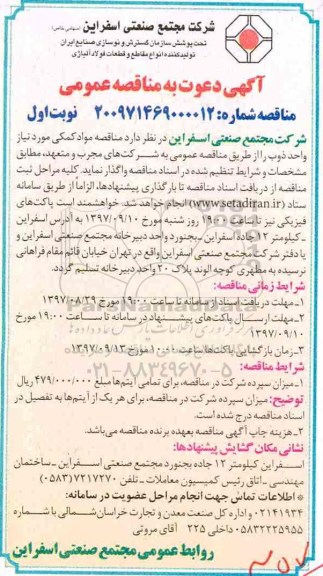 شرکت مجتمع صنعتی اسفراین (سهامی خاص)
تحت پوشش سازمان گسترش و نوسازی صنایع ایران
تولیدکننده انواع مقاطع و قطعات فولاد آلیاژی
آگهی دعوت به مناقصه عمومی
مناقصه شماره: ۲۰۰۹۷۱۴۶۹۰۰۰۰۱۲ نوبت اول
شرکت مجتمع صنعتی اسفراین در نظر دارد مناقصه مواد کمکی مورد نیاز
واحد ذوب را از طریق مناقصه عمومی به شرکت‌های مجرب و متعهد، مطابق
مشخصات و شرایط تنظیم شده در اسناد مناقصه واگذار نماید. کلیه مراحل ثبت
مناقصه از دریافت اسناد مناقصه تا بارگذاری پیشنهادها، الزاماً از طریق سامانه
ستاد (www.setadiran.ir) انجام خواهد شد. خواهشمند است پاکت‌های
فیزیکی نیز تا ساعت ۱۹:۰۰ روز شنبه مورخ ۱۳۹۷/۰۹/۱۰ به آدرس اسفراین
ـ کیلومتر ۱۲ جاده اسفراین ـ بجنورد واحد دبیرخانه مجتمع صنعتی اسفراین و
یا دفتر شرکت مجتمع صنعتی اسفراین واقع در تهران خیابان قائم مقام فراهانی
نرسیده به مطهری کوچه الوند پلاک ۲۰ واحد دبیرخانه تسلیم گردد.
شرایط زمانی مناقصه:
۱ـ مهلت دریافت اسناد از سامانه تا ساعت ۱۹:۰۰ مورخ ۱۳۹۷/۰۸/۲۹
۲ـ مهلت ارسال پاکت‌های پیشنهاد در سامانه تا ساعت ۱۹:۰۰ مورخ
۱۳۹۷/۰۹/۱۰
۳ـ زمان بازگشایی پاکت‌ها ساعت ۱۰:۰۰ مورخ ۱۳۹۷/۰۹/۱۲
۰۲۱-۸۸۳۴۹۶۷۰-۵
شرایط مناقصه:
۱ـ میزان سپرده شرکت در مناقصه، برای تمامی آیتم‌ها مبلغ ۴۷۹/۰۰۰/۰۰۰ ریال
توضیح: میزان سپرده شرکت در مناقصه، برای هر یک از آیتم‌ها به تفصیل در
اسناد مناقصه درج شده است.
۲ـ هزینه چاپ آگهی مناقصه بعهده برنده مناقصه می‌باشد.
نشانی مکان گشایش پیشنهادها:
اسفراین کیلومتر ۱۲ جاده بجنورد مجتمع صنعتی اسفراین ـ ساختمان
مهندسی ـ اتاق رئیس کمیسیون معاملات ـ تلفن ۷۲۱۷۲۷۰ (۰۵۸۳)
* اطلاعات تماس جهت انجام مراحل عضویت در سامانه:
۰۲۱۴۱۹۳۴ و اداره کل صنعت معدن و تجارت خراسان شمالی با شماره
۰۵۸۳۲۲۲۵۹۵۵ داخلی ۲۲۵ آقای مروتی
روابط عمومی مجتمع صنعتی اسفراین